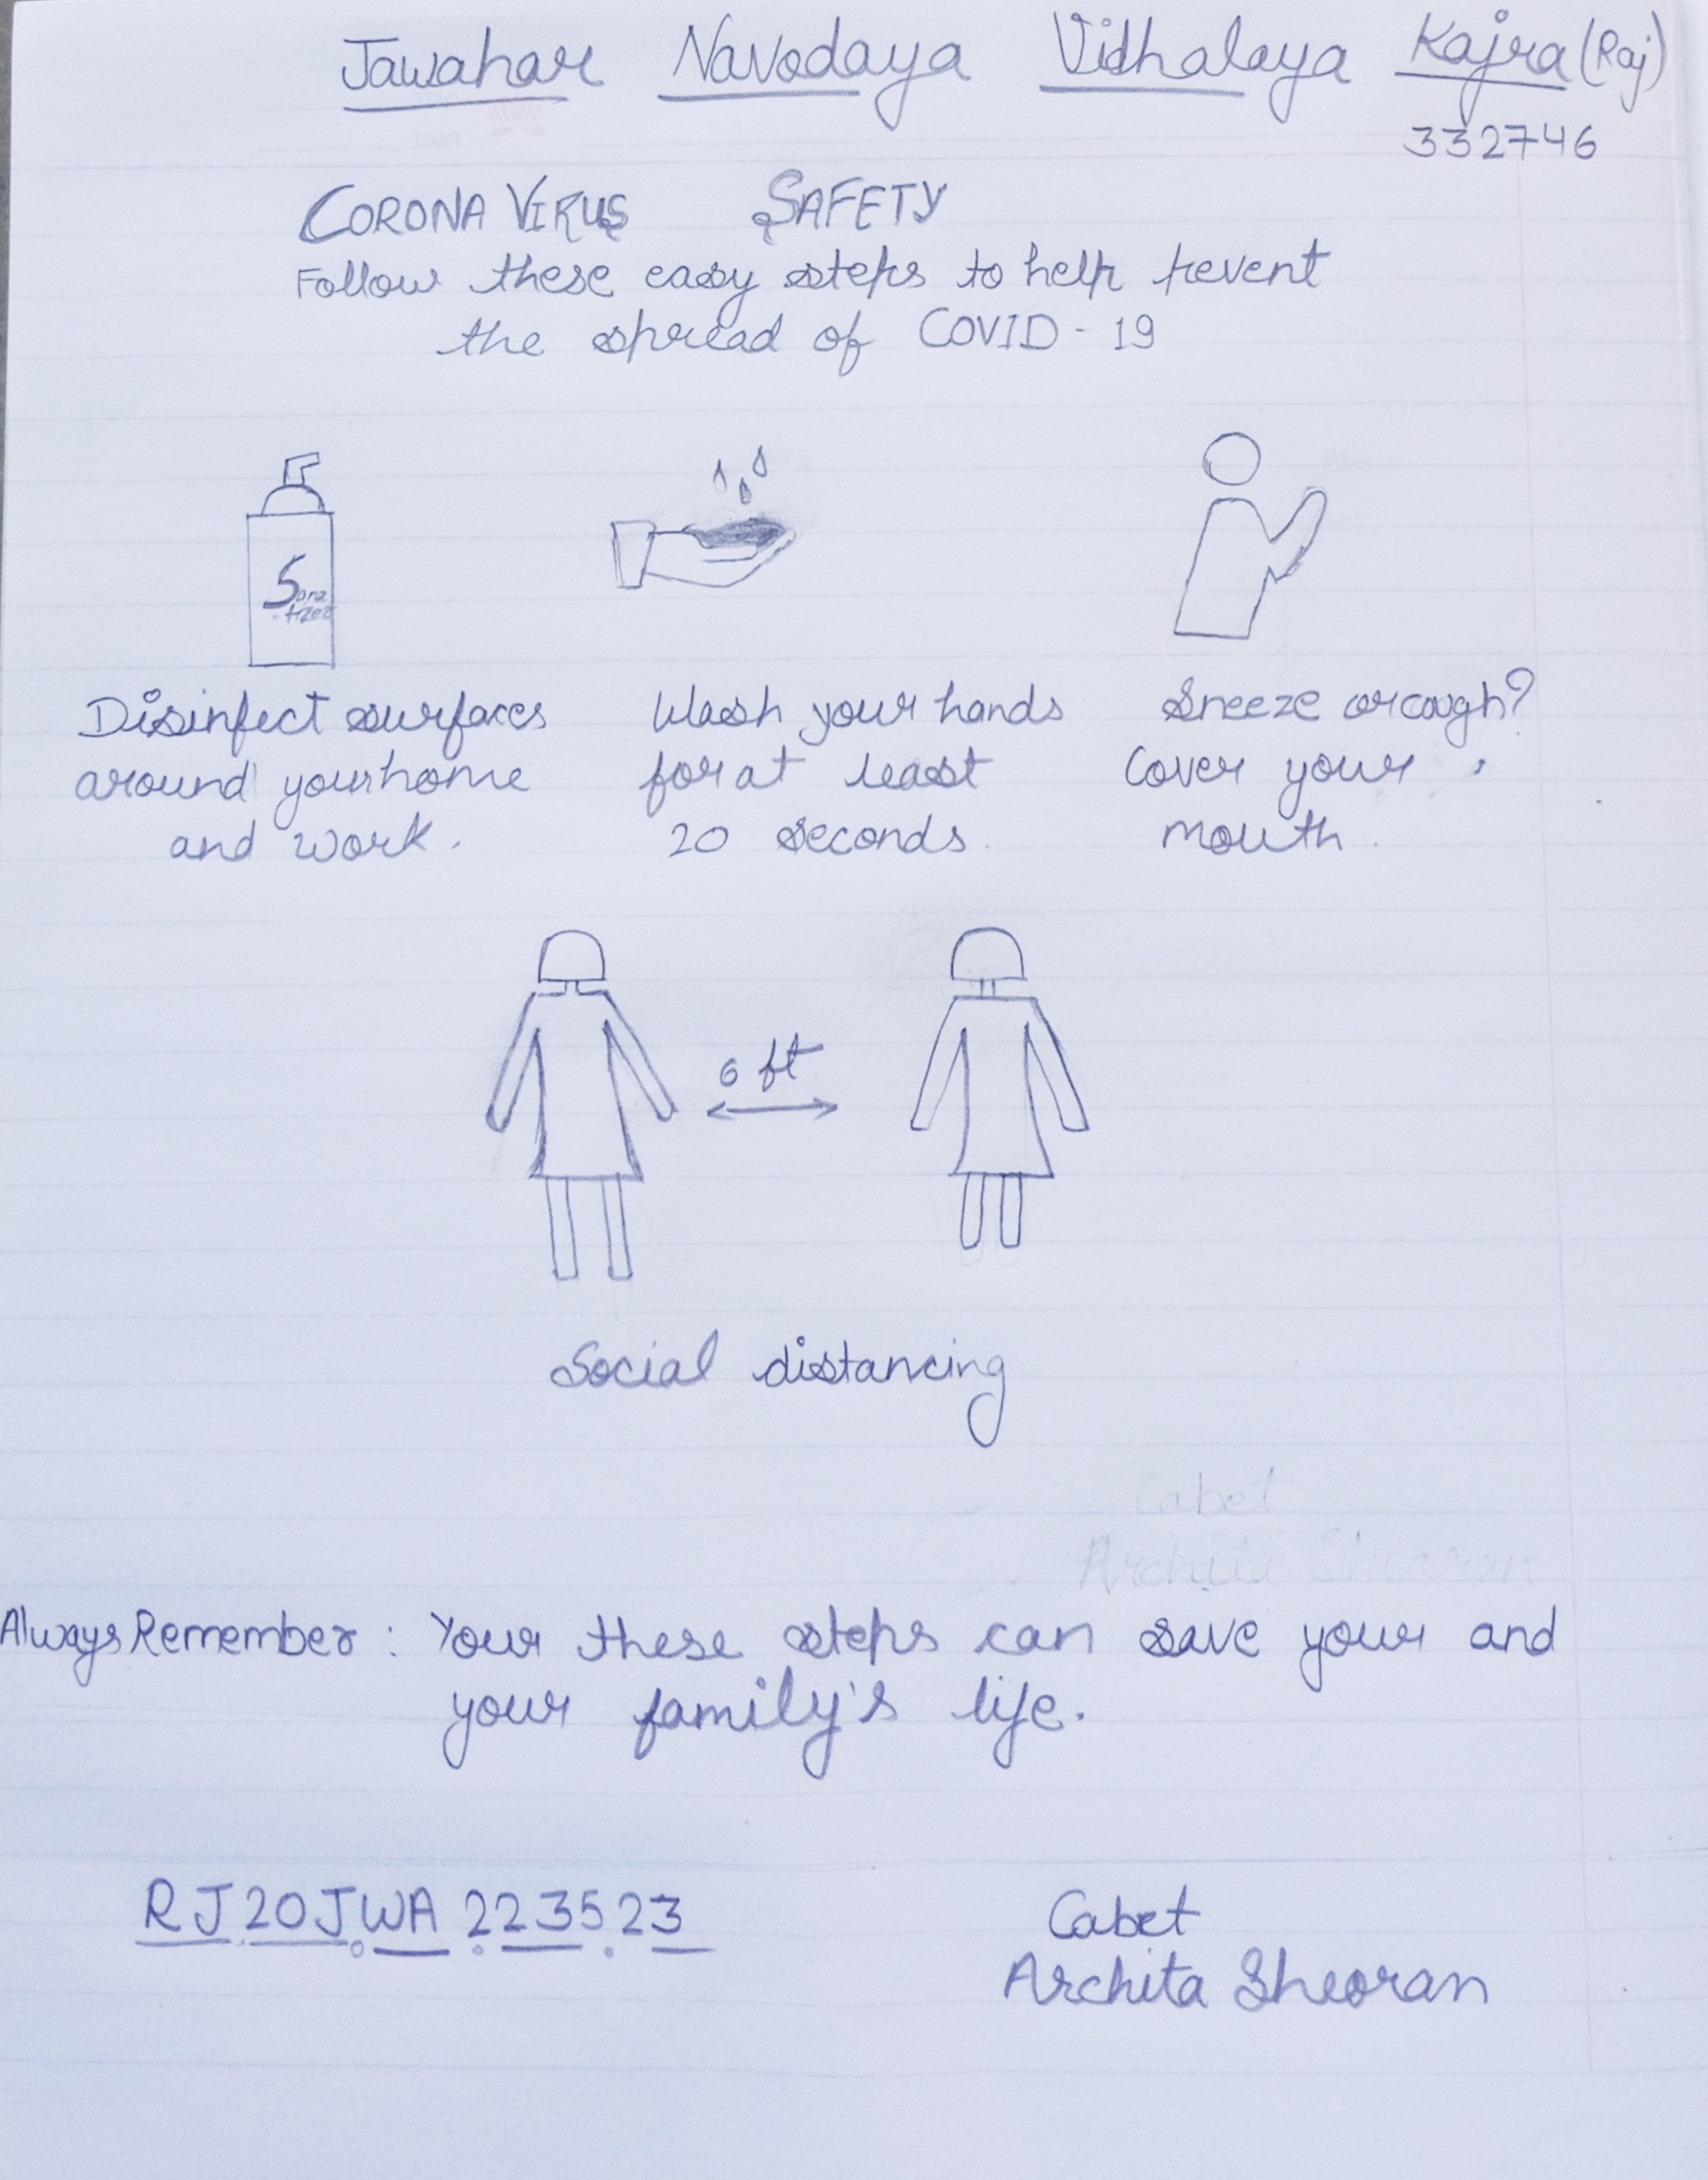 Jawahar Navodaya Vidhalaya Kajra (Raj)
332746
CORONA VIRUS SAFETY
Follow these easy steps to help prevent
the spread of COVID-19
Disinfect surfaces
around your home
and work.
Wash your hands
for at least
20 seconds.
Sneeze or cough?
Cover your
mouth.
6 ft
Social distancing
Cabet
Archita Sheoran
Always Remember : Your these steps can save your and
your family's life.
RJ20JWA223523
Cabet
Archita Sheoran